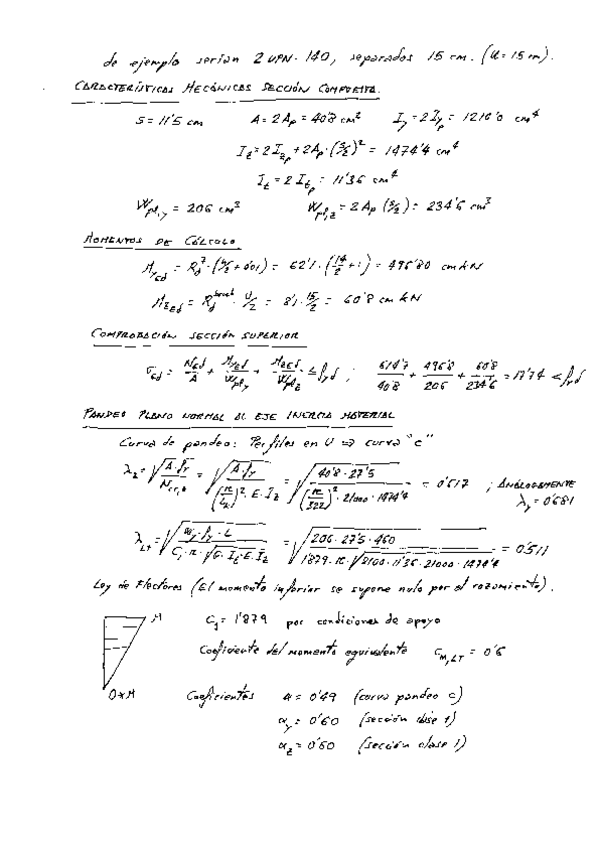 de ejemplo serían 2 UPN-140, separados 15 cm. (U = 15 cm).
CARACTERÍSTICAS MECÁNICAS SECCIÓN COMPUESTA.
s = 11'5 cm A = 2Ap = 40'8 cm² Iy = 2Iyp = 1210'0 cm⁴
Iz = 2Izp + 2Ap·(s/2)² = 1474'4 cm⁴
It = 2Itp = 11'36 cm⁴
Wpl,y = 206 cm³ Wpl,z = 2Ap (s/2) = 234'6 cm³
MOMENTOS DE CÁLCULO.
MyEd = Rd²·(h/2 + 0'01) = 62'1·(14/2 + 1) = 496'80 cmkN
MzEd = Rd · U/2 = 8'1·15/2 = 60'8 cmkN
COMPROBACIÓN SECCIÓN SUPERIOR
σEd = NEd/A + MyEd/Wply + MzEd/Wplz ≤ fyd ; 614'7/40'8 + 496'8/206 + 60'8/234'6 = 17'74 < fyd
PANDEO PLANO NORMAL AL EJE INERCIA MATERIAL
Curva de pandeo: Perfiles en U ⇒ curva "c"
λz = √(A·fy/Ncr,z) = √(A·fy/((π/Lk)²·E·Iz)) = √(40'8·27'5/((π/322)²·21000·1474'4)) = 0'617 ; ANÁLOGAMENTE
λy = 0'681
λLT = √(Wy·fy·L/(C1·π·√(G·It·E·Iz))) = √(206·27'5·460/(1'879·π·√(8100·11'36·21000·1474'4))) = 0'511
Ley de Flectores (El momento inferior se supone nulo por el rozamiento).
M C1 = 1'879 por condiciones de apoyo
Coeficiente del momento equivalente CM,LT = 0'6
0×M Coeficientes α = 0'49 (curva pandeo c)
αy = 0'60 (sección clase 1)
αz = 0'60 (sección clase 1)